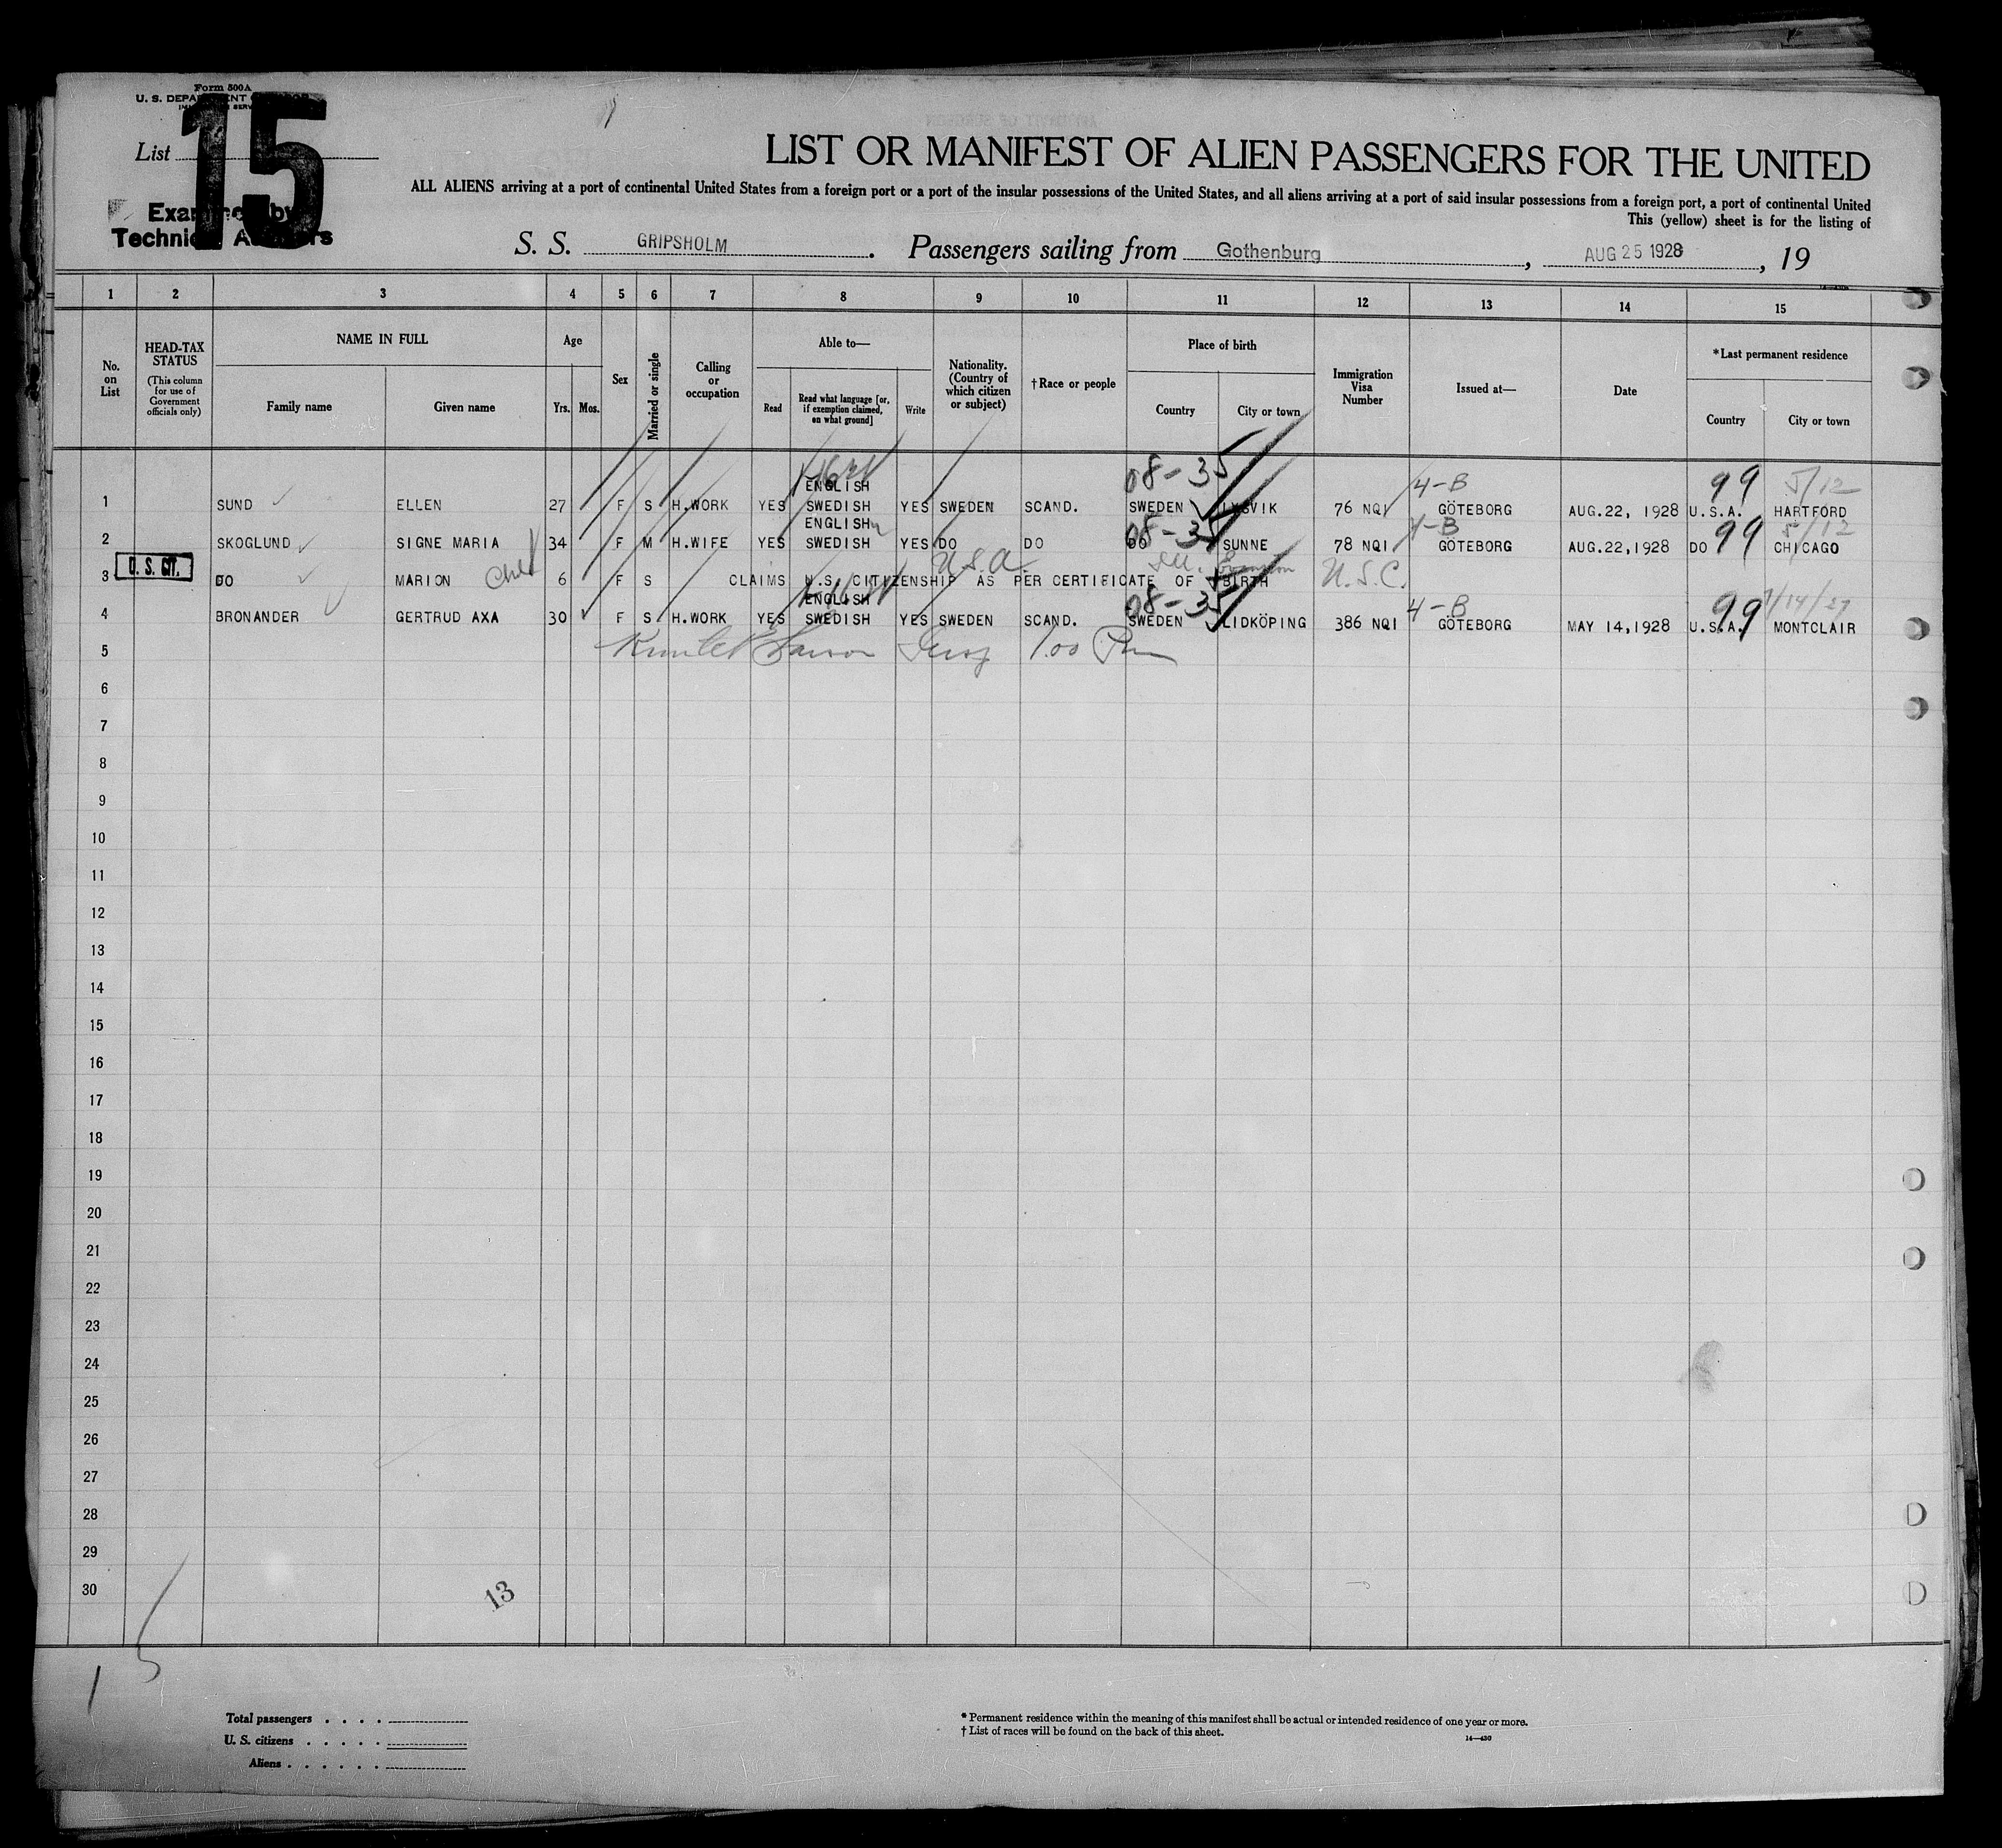 Form 500A
U. S. DEPARTMENT
List 15
Examined by
Technical Advisers
LIST OR MANIFEST OF ALIEN PASSENGERS FOR THE UNITED
ALL ALIENS arriving at a port of continental United States from a foreign port or a port of the insular possessions of the United States, and all aliens arriving at a port of said insular possessions from a foreign port, a port of continental United
This (yellow) sheet is for the listing of
S. S. GRIPSHOLM. Passengers sailing from Gothenburg, AUG 25 1928, 19
1 2 3 4 5 6 7 8 9 10 11 12 13 14 15
No. on List
HEAD-TAX STATUS
(This column for use of Government officials only)
NAME IN FULL
Family name
Given name
Age
Yrs. Mos.
Sex
Married or single
Calling or occupation
Able to—
Read
Read what language [or, if exemption claimed, on what ground]
Write
Nationality. (Country of which citizen or subject)
†Race or people
Place of birth
Country
City or town
Immigration Visa Number
Issued at—
Date
*Last permanent residence
Country
City or town
08-35 4-B 99 5/12
ENGLISH
1 SUND ELLEN 27 F S H.WORK YES SWEDISH YES SWEDEN SCAND. SWEDEN LYSVIK 76 NQI GÖTEBORG AUG.22, 1928 U.S.A. HARTFORD
ENGLISH 08-35 4-B 99 5/12
2 SKOGLUND SIGNE MARIA 34 F M H.WIFE YES SWEDISH YES DO DO DO SUNNE 78 NQI GÖTEBORG AUG.22,1928 DO CHICAGO
U. S. CIT. U.S.A. Ill. Evanston U.S.C.
3 DO MARION 6 F S CLAIMS U.S. CITIZENSHIP AS PER CERTIFICATE OF BIRTH
ENGLISH 08-35 4-B 99
4 BRONANDER GERTRUD AXA 30 F S H.WORK YES SWEDISH YES SWEDEN SCAND. SWEDEN LIDKÖPING 386 NQI GÖTEBORG MAY 14,1928 U.S.A. MONTCLAIR
5
6
7
8
9
10
11
12
13
14
15
16
17
18
19
20
21
22
23
24
25
26
27
28
29
30
13
Total passengers . . . .
U. S. citizens . . . . .
Aliens . . . . . .
* Permanent residence within the meaning of this manifest shall be actual or intended residence of one year or more.
† List of races will be found on the back of this sheet.
14—430